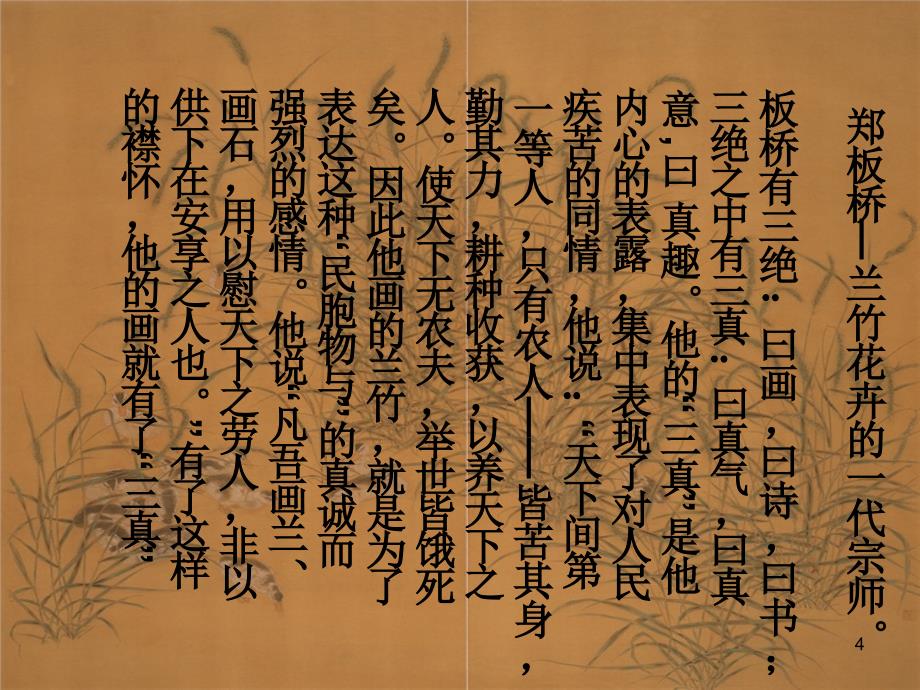 郑板桥—兰竹花卉的一代宗师。
板桥有三绝：曰画，曰诗，曰书；
三绝之中有三真：曰真气，曰真
意，曰 真趣。他的“三真”是他
内心的表露，集中表现了对人民
疾苦的同情，他说：“天下间第
一等人，只有农人——皆苦其身，
勤其力，耕种收获，以养天下之
人。使天下无农夫，举世皆饿死
矣。因此他画的兰竹，就是为了
表达这种“民胞物与”的真诚而
强烈的感情。他说“凡吾画兰、
画石，用以慰天下之劳人，非以
供下在安享之人也。”有了这样
的襟怀，他的画就有了“三真”
4